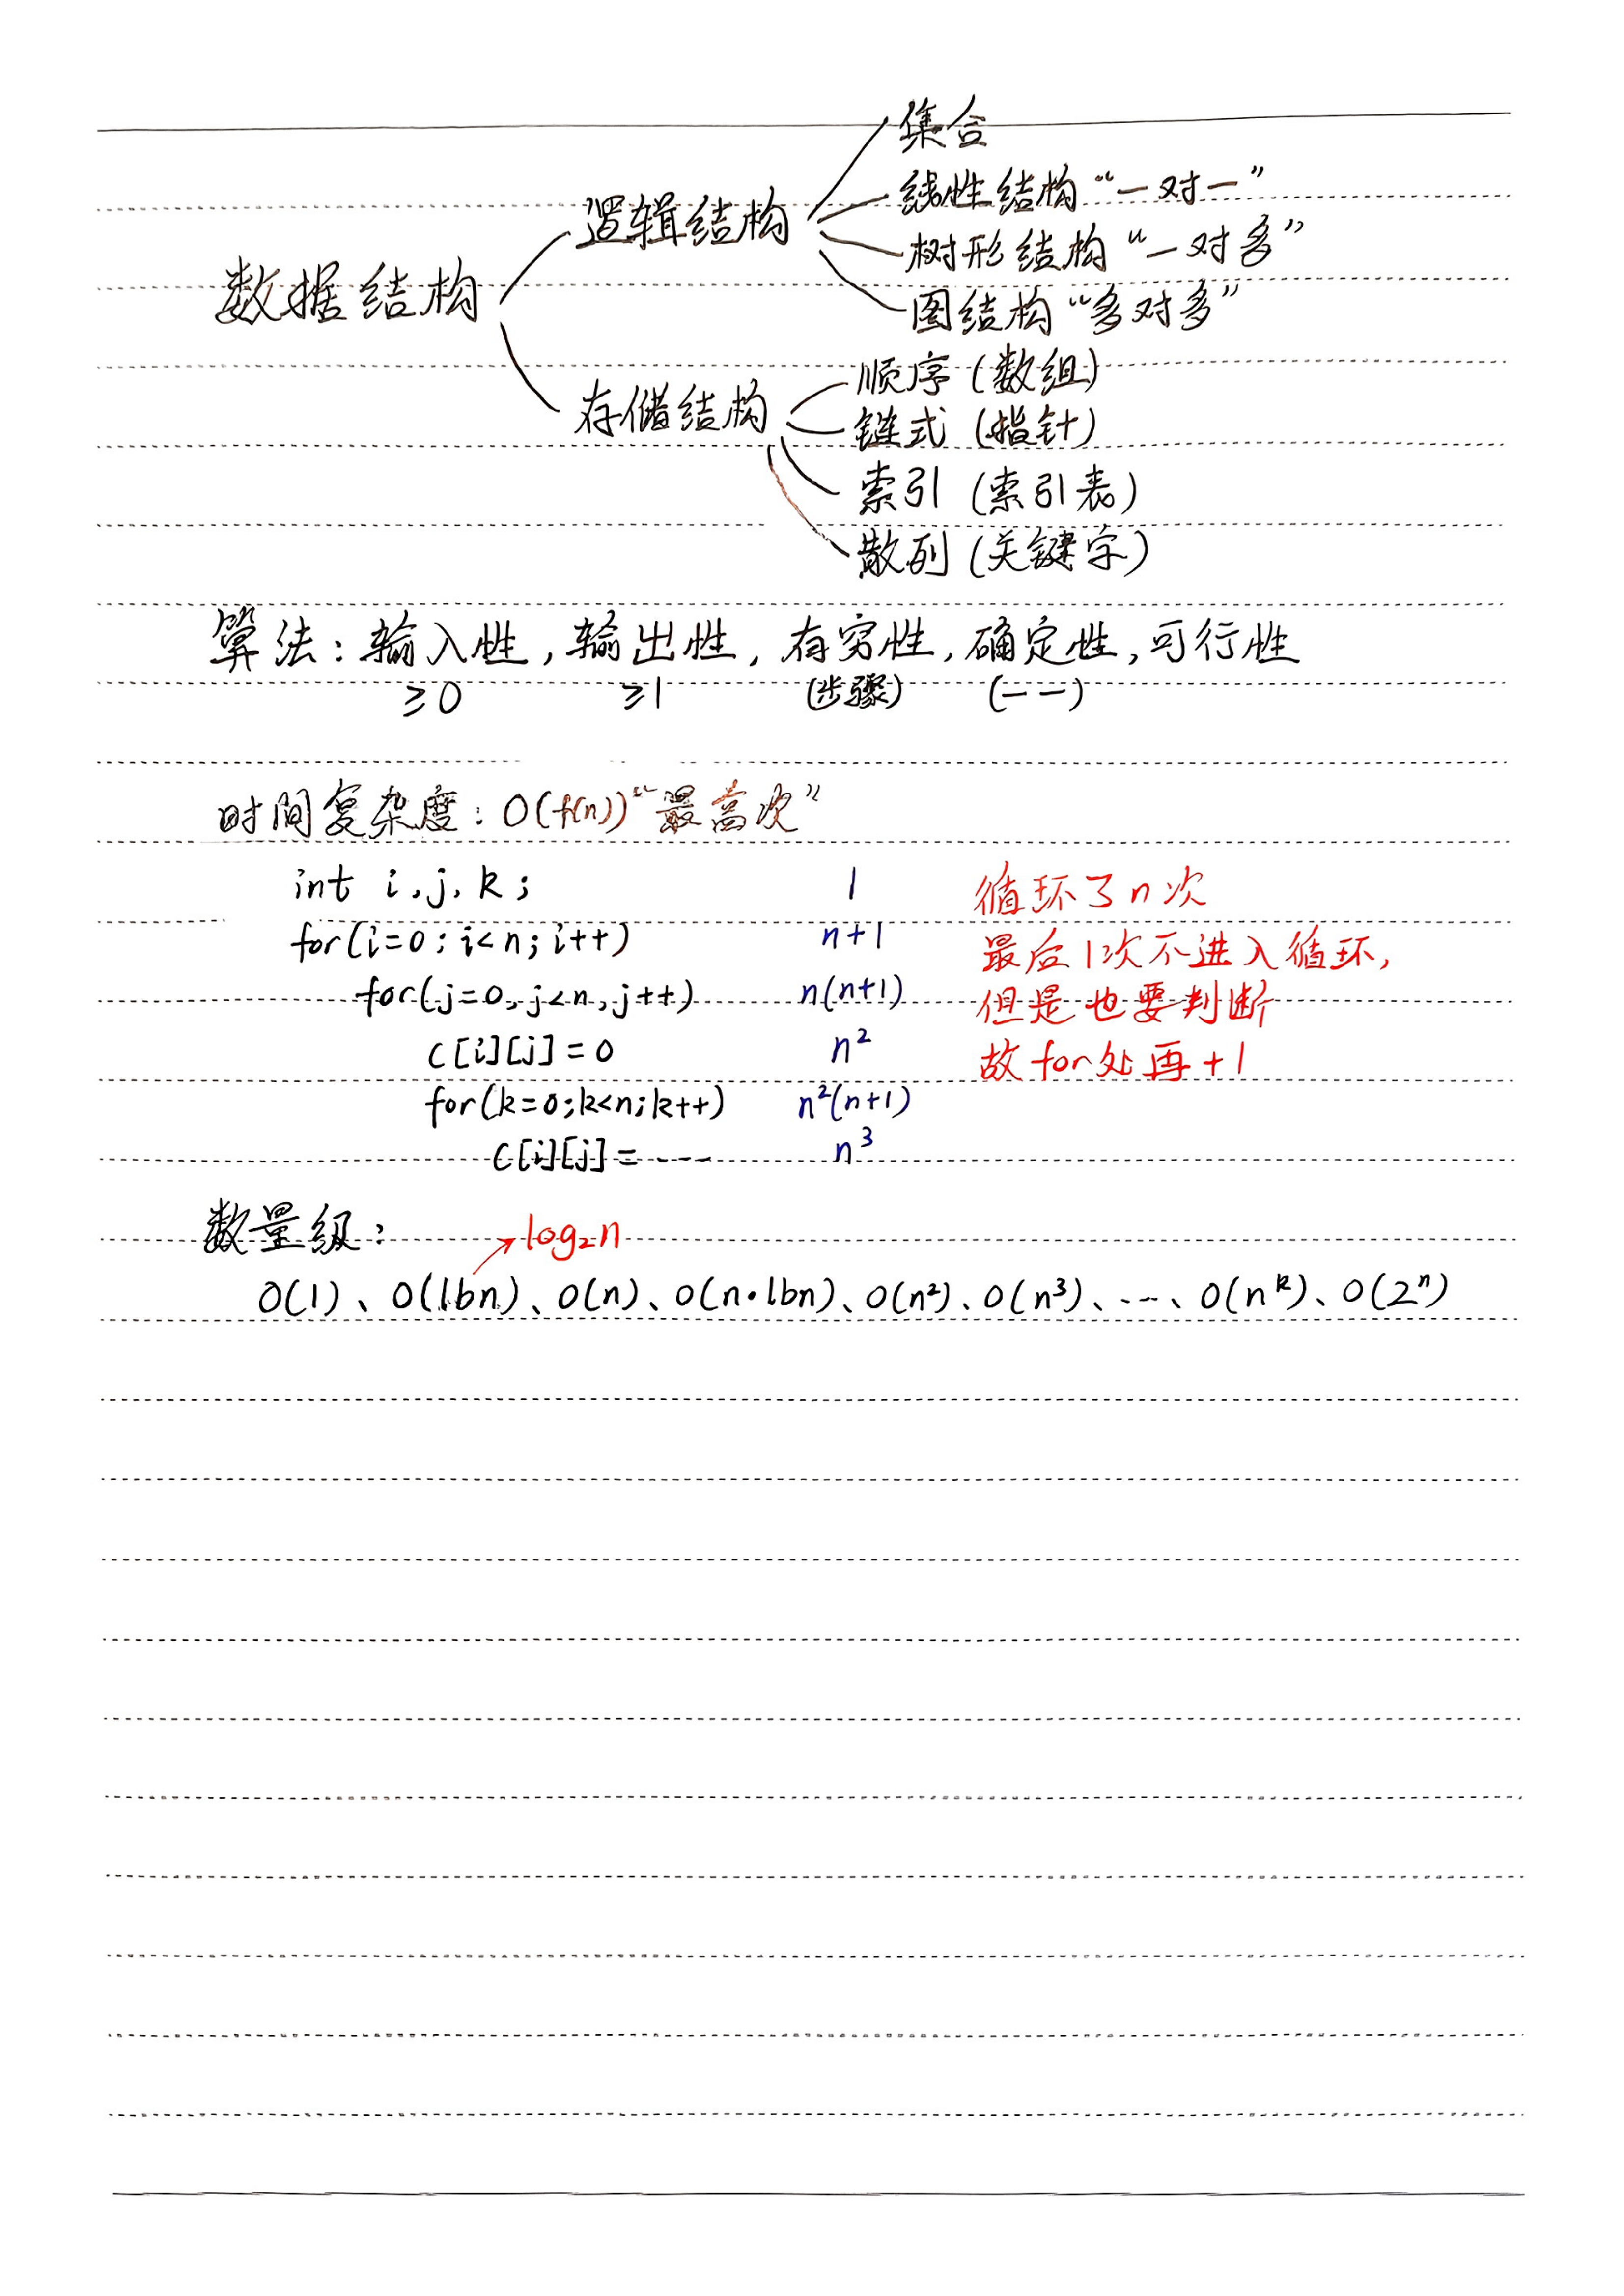 数据结构
逻辑结构
集合
线性结构“一对一”
树形结构“一对多”
图结构“多对多”
存储结构
顺序(数组)
链式(指针)
索引(索引表)
散列(关键字)
算法:输入性,输出性,有穷性,确定性,可行性
≥0 ≥1 (步骤) (一一)
时间复杂度:O(f(n))“最高次”
int i,j,k; 1
for(i=0;i<n;i++) n+1
for(j=0,j<n,j++) n(n+1)
C[i][j]=0 n²
for(k=0;k<n;k++) n²(n+1)
C[i][j]=--- n³
循环了n次
最后1次不进入循环,
但是也要判断
故for处再+1
数量级:
log₂n
O(1)、O(lbn)、O(n)、O(n·lbn)、O(n²)、O(n³)、---、O(nᵏ)、O(2ⁿ)